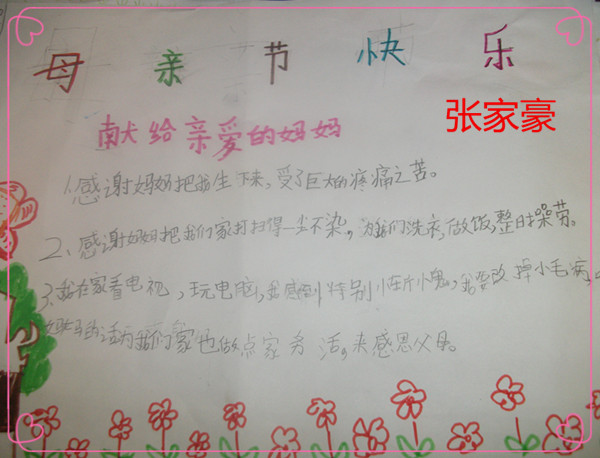 母亲节快乐
张家豪
献给亲爱的妈妈
1.感谢妈妈把我生下来,受了巨大的疼痛之苦。
2、感谢妈妈把我们家打扫得一尘不染,为我们洗衣,做饭,整日操劳。
3.我在家看电视,玩电脑,我感到特别,我要改掉小毛病,
妈妈的话为我们家也做点家务活,来感恩父母。